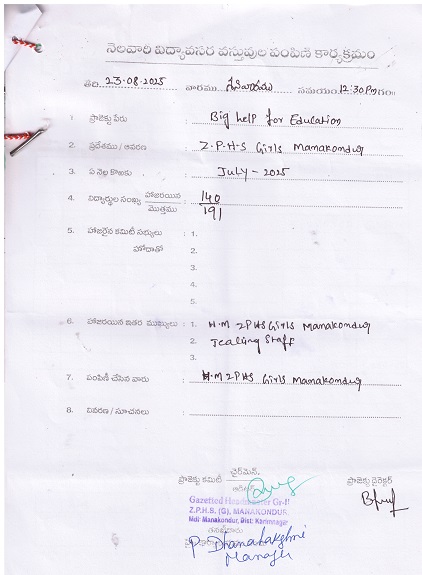 నెలవారి విద్యావసర వస్తువుల పంపిణి కార్యక్రమం
తేది 23.08.2025 వారము శనివారము సమయం 12:30 Pm గం॥
1. ప్రాజెక్టు పేరు : Big help for Education
2. ప్రదేశము / ఆవరణ : Z.P.H.S Girls Manakondur
3. ఏ నెల కొఱకు : July - 2025
4. విద్యార్థుల సంఖ్య హాజరయిన / మొత్తము : 140 / 191
5. హాజరైన కమిటీ సభ్యులు : 1.
హోదాతో 2.
3.
4.
5.
6. హాజరయిన ఇతర ముఖ్యులు : 1. H.M ZPHS Girls Manakondur
2. Teaching Staff
3.
7. పంపిణీ చేసిన వారు : H.M ZPHS Girls Manakondur
8. వివరణ / సూచనలు :
ప్రాజెక్టు కమిటీ ఛైర్మెన్ ప్రాజెక్టు డైరెక్టర్
Gazetted Headmaster Gr-II
Z.P.H.S. (G), MANAKONDUR,
Mdl: Manakondur, Dist: Karimnagar
P. Dhanalakshmi
Manager